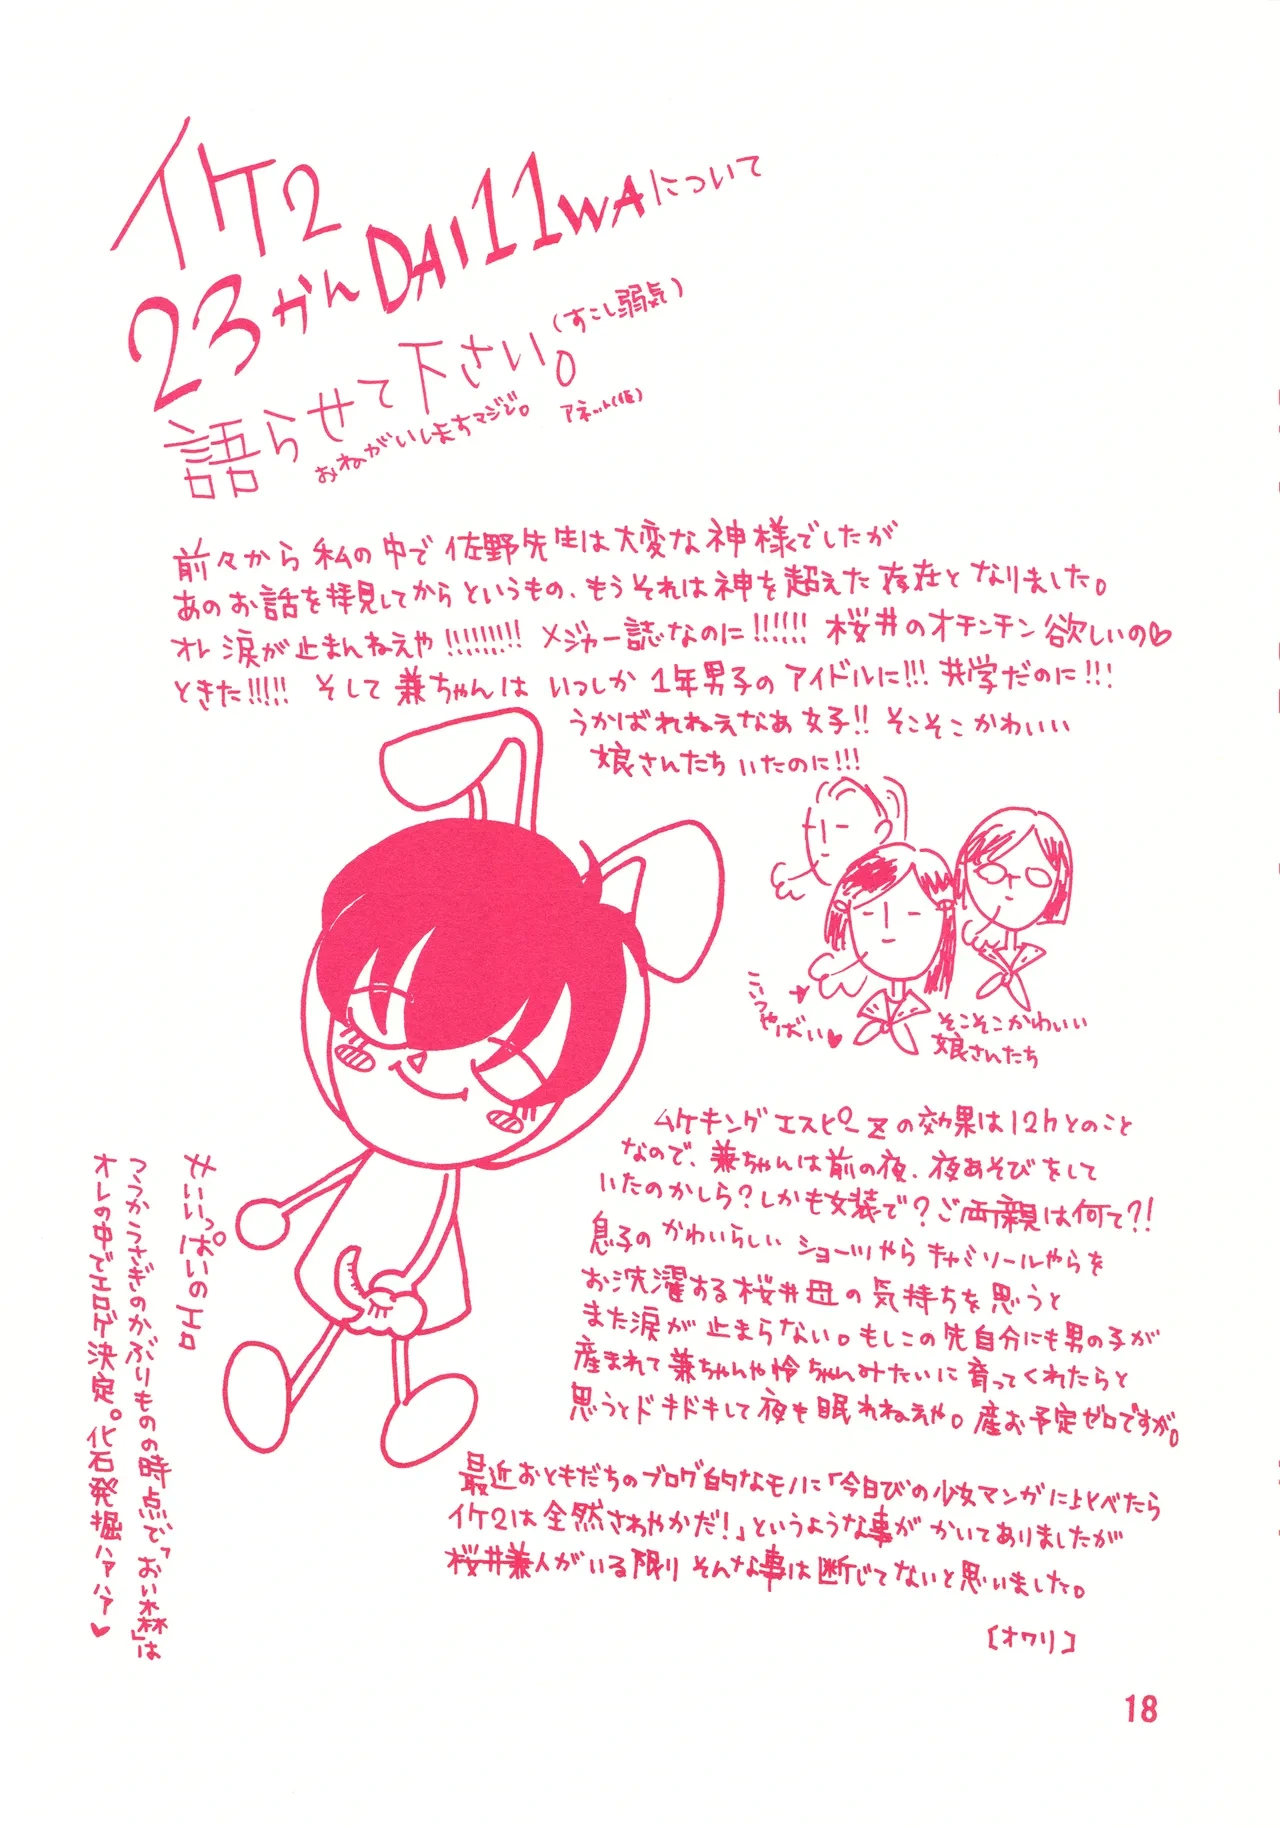 イケ2
23かんDAI11WAについて
語らせて下さい。(すこし弱気)
おねがいしますマジで。
アネット(仮)
前々から私の中で佐野先生は大変な神様でしたが
あのお話を拝見してからというもの、もうそれは神を超えた存在となりました。
オレ涙が止まんねえや!!!!!!!!! メジャー誌なのに!!!!!! 桜井のオチンチン欲しいの♡
ときた!!!!! そして兼ちゃんはいつしか1年男子のアイドルに!!! 共学だのに!!!
うかばれねえなあ女子!! そこそこかわいい
娘さんたちいたのに!!!
こいつやばい♥
そこそこかわいい
娘さんたち
ムケキングエスピーZの効果は12hとのこと
なので、兼ちゃんは前の夜、夜あそびをして
いたのかしら?しかも女装で?ご両親は何て?!
息子のかわいらしいショーツやらキャミソールやらを
お洗濯する桜井母の気持ちを思うと
また涙が止まらない。もしこの先自分にも男の子が
産まれて兼ちゃんや怜ちゃんみたいに育ってくれたらと
思うとドキドキして夜も眠れねえや。産む予定ゼロですが。
せいいっぱいのエロ
つうかうさぎのかぶりものの時点で「おい森」は
オレの中でエロゲ決定。化石発掘ハァハァ♥
最近おともだちのブログ的なモノに「今日びの少女マンガに比べたら
イケ2は全然さわやかだ!」というような事がかいてありましたが
桜井兼人がいる限りそんな事は断じてないと思いました。
[オワリ]
18